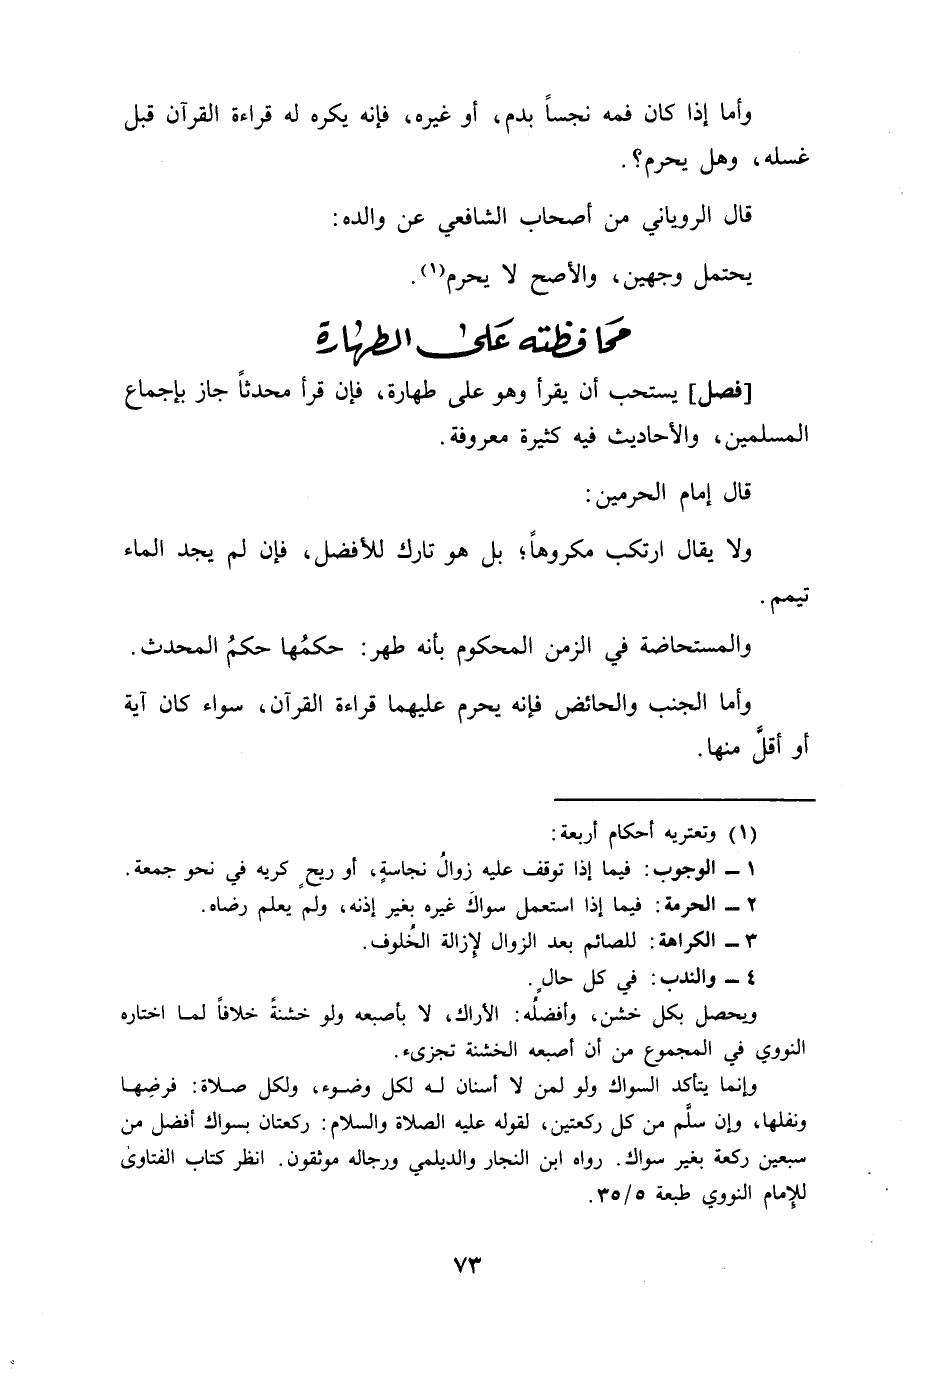 وأما إذا كان فمه نجساً بدم، أو غيره، فإنه يكره له قراءة القرآن قبل
غسله، وهل يحرم؟.
قال الروياني من أصحاب الشافعي عن والده:
يحتمل وجهين، والأصح لا يحرم(١).
محافظته على الطهارة
[فصل] يستحب أن يقرأ وهو على طهارة، فإن قرأ محدثاً جاز بإجماع
المسلمين، والأحاديث فيه كثيرة معروفة.
قال إمام الحرمين:
ولا يقال ارتكب مكروهاً؛ بل هو تارك للأفضل، فإن لم يجد الماء
تيمم.
والمستحاضة في الزمن المحكوم بأنه طهر: حكمُها حكمُ المحدث.
وأما الجنب والحائض فإنه يحرم عليهما قراءة القرآن، سواء كان آية
أو أقلَّ منها.
(١) وتعتريه أحكام أربعة:
١ ـ الوجوب: فيما إذا توقف عليه زوالُ نجاسةٍ، أو ريحٍ كريه في نحو جمعة.
٢ ـ الحرمة: فيما إذا استعمل سواكَ غيره بغير إذنه، ولم يعلم رضاه.
٣ ـ الكراهة: للصائم بعد الزوال لإزالة الخُلوف.
٤ ـ والندب: في كل حالٍ.
ويحصل بكل خشن، وأفضلُه: الأراك، لا بأصبعه ولو خشنةً خلافاً لما اختاره
النووي في المجموع من أن أصبعه الخشنة تجزىء.
وإنما يتأكد السواك ولو لمن لا أسنان له لكل وضوء، ولكل صلاة: فرضِها
ونفلها، وإن سلَّم من كل ركعتين، لقوله عليه الصلاة والسلام: ركعتان بسواك أفضل من
سبعين ركعة بغير سواك. رواه ابن النجار والديلمي ورجاله موثقون. انظر كتاب الفتاوى
للإمام النووي طبعة ٣٥/٥.
٧٣